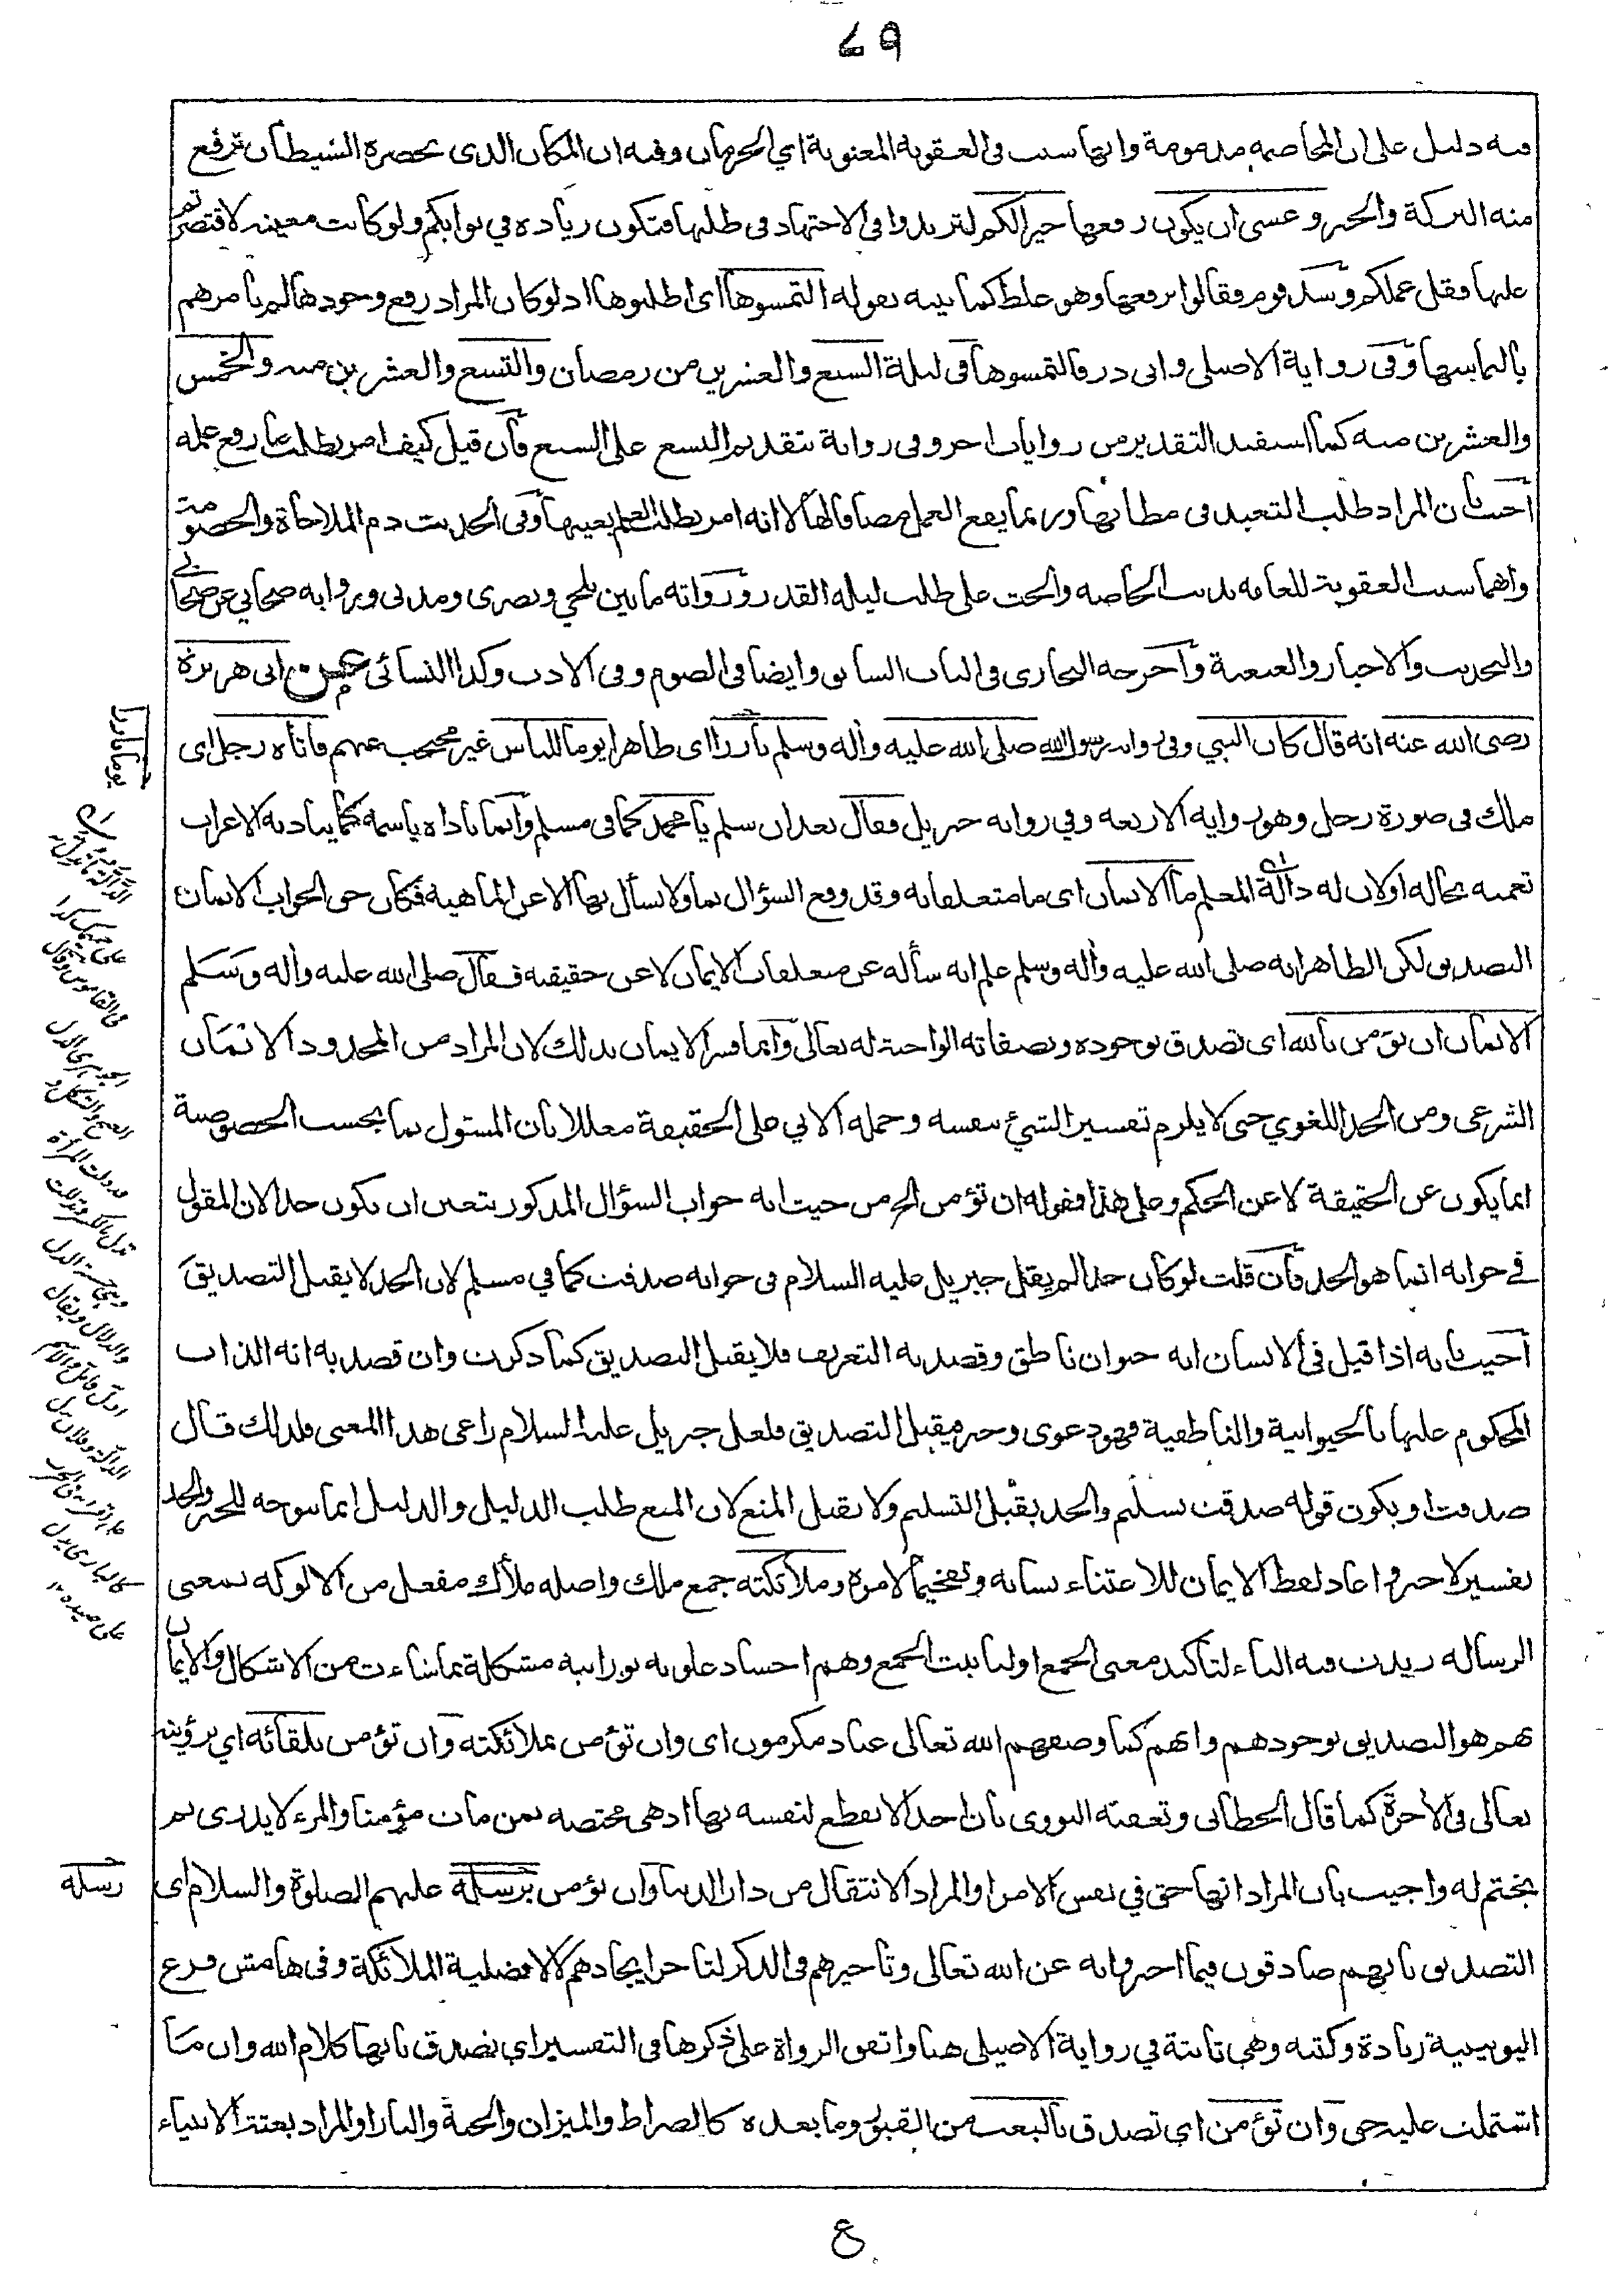 ٤٩
فيه دليل على ان المخاصمة مذمومة وانها سبب في العقوبة المعنوية اي الحرمان وفيه ان المكان الذى يحضره الشيطان ترفع
منه البركة والخير وعسى ان يكون رفعها خيرا لكم لتزيدوا في الاجتهاد في طلبها فتكون زيادة في ثوابكم ولو كانت معينة لاقتصرتم
عليها فقل عملكم وشذ قوم فقالوا برفعها وهو غلط كما بينه بقوله التمسوها اى اطلبوها اذ لو كان المراد رفع وجودها لم يامرهم
بالتماسها وفى رواية الاصيلى وابى ذر فالتمسوها فى ليلة السبع والعشرين من رمضان والتسع والعشرين منه والخمس
والعشرين منه كما استفيد التقدير من روايات اخر وفى رواية بتقديم التسع على السبع فان قيل كيف امر بطلب ما رفع علمه
اجيب بان المراد طلب التعبد فى مظانها وربما يقع العمل مصادفا لها لا انه امر بطلب العلم بعينها وفى الحديث ذم الملاحاة والخصومة
وانهما سبب العقوبة للعامة بذنب الخاصة والحث على طلب ليلة القدر ورواته ما بين بلخي وبصرى ومدنى وبروايه صحابي عن صحابي
والتحديث والاخبار والعنعنة واخرجه البخارى فى الباب السابق وايضا فى الصوم وفى الادب وكذا النسائى عن ابى هريرة
رضى الله عنه انه قال كان النبي وفى رواية رسول الله صلى الله عليه وأله وسلم بارزا اى ظاهرا يوما للناس غير محتجب عنهم فاتاه رجل اى
ملك فى صورة رجل وهو رواية الاربعة وفي رواية جبريل فقال بعد ان سلم يا محمد كما فى مسلم وانما ناداه باسمه كما يناديه الاعراب
تعمية بحاله او لان له دالة المعلم ما الايمان اى ما متعلقاته وقد وقع السؤال بما ولا يسأل بها الا عن الماهية فكان حق الجواب الايمان
التصديق لكن الظاهر انه صلى الله عليه وأله وسلم علم انه سأله عن متعلقات الايمان لا عن حقيقته فقال صلى الله عليه وأله وسلم
الايمان ان تؤمن بالله اى تصدق بوجوده وبصفاته الواجبة له تعالى وانما فسر الايمان بذلك لان المراد من المحدود الايمان
الشرعى ومن الحد اللغوي حتى لا يلزم تفسير الشئ بنفسه وحمله الابي على الحقيقة معللا بان المسئول بما بحسب الخصوصية
انما يكون عن الحقيقة لا عن الحكم وعلى هذا فقوله ان تؤمن الخ من حيث انه جواب السؤال المذكور يتعين ان يكون حدا لان المقول
في جوابه انما هو الحد فان قلت لو كان حدا لم يقل جبريل عليه السلام فى جوابه صدقت كما في مسلم لان الحد لا يقبل التصديق
اجيب بانه اذا قيل فى الانسان انه حيوان ناطق وقصد به التعريف فلا يقبل التصديق كما ذكرت وان قصد به انه الذات
المحكوم عليها بالحيوانية والناطقية فهو دعوى وخبر فيقبل التصديق فلعل جبريل عليه السلام راعى هذا المعنى فلذلك قال
صدقت او يكون قوله صدقت تسليم والحد يقبل التسليم ولا يقبل المنع لان المنع طلب الدليل والدليل انما يتوجه للخبر والحد
تفسير لا خبر واعاد لفظ الايمان للاعتناء بشانه وتفخيما لامره وملائكته جمع ملك واصله ملأك مفعل من الالوكة بمعنى
الرسالة زيدت فيه التاء لتاكيد معنى الجمع او لتانيث الجمع وهم اجساد علوية نورانية مشكلة بما شاءت من الاشكال والايمان
بهم هو التصديق بوجودهم وانهم كما وصفهم الله تعالى عباد مكرمون اى وان تؤمن بملائكته وان تؤمن بلقائه اي برؤيته
تعالى فى الاخرة كما قال الخطابى وتعقبه النووى بان احدا لا يقطع لنفسه بها اذ هى مختصة بمن مات مؤمنا والمرء لا يدرى بم
يختم له واجيب بان المراد انها حق في نفس الامر او المراد الانتقال من دار الدنيا وان تؤمن برسله عليهم الصلوة والسلام اى
التصديق بانهم صادقون فيما اخبروا به عن الله تعالى وتاخيرهم فى الذكر لتاخر ايجادهم لا لافضلية الملائكة وفى هامش فرع
اليونينية زيادة وكتبه وهى ثابتة في رواية الاصيلى هنا واتفق الرواة على ذكرها فى التفسير اي تصدق بانها كلام الله وان ما
اشتملت عليه حق وان تؤمن اي تصدق بالبعث من القبور وما بعده كالصراط والميزان والجنة والنار او المراد بعثة الانبياء
يوما بارزا
رسله
ع